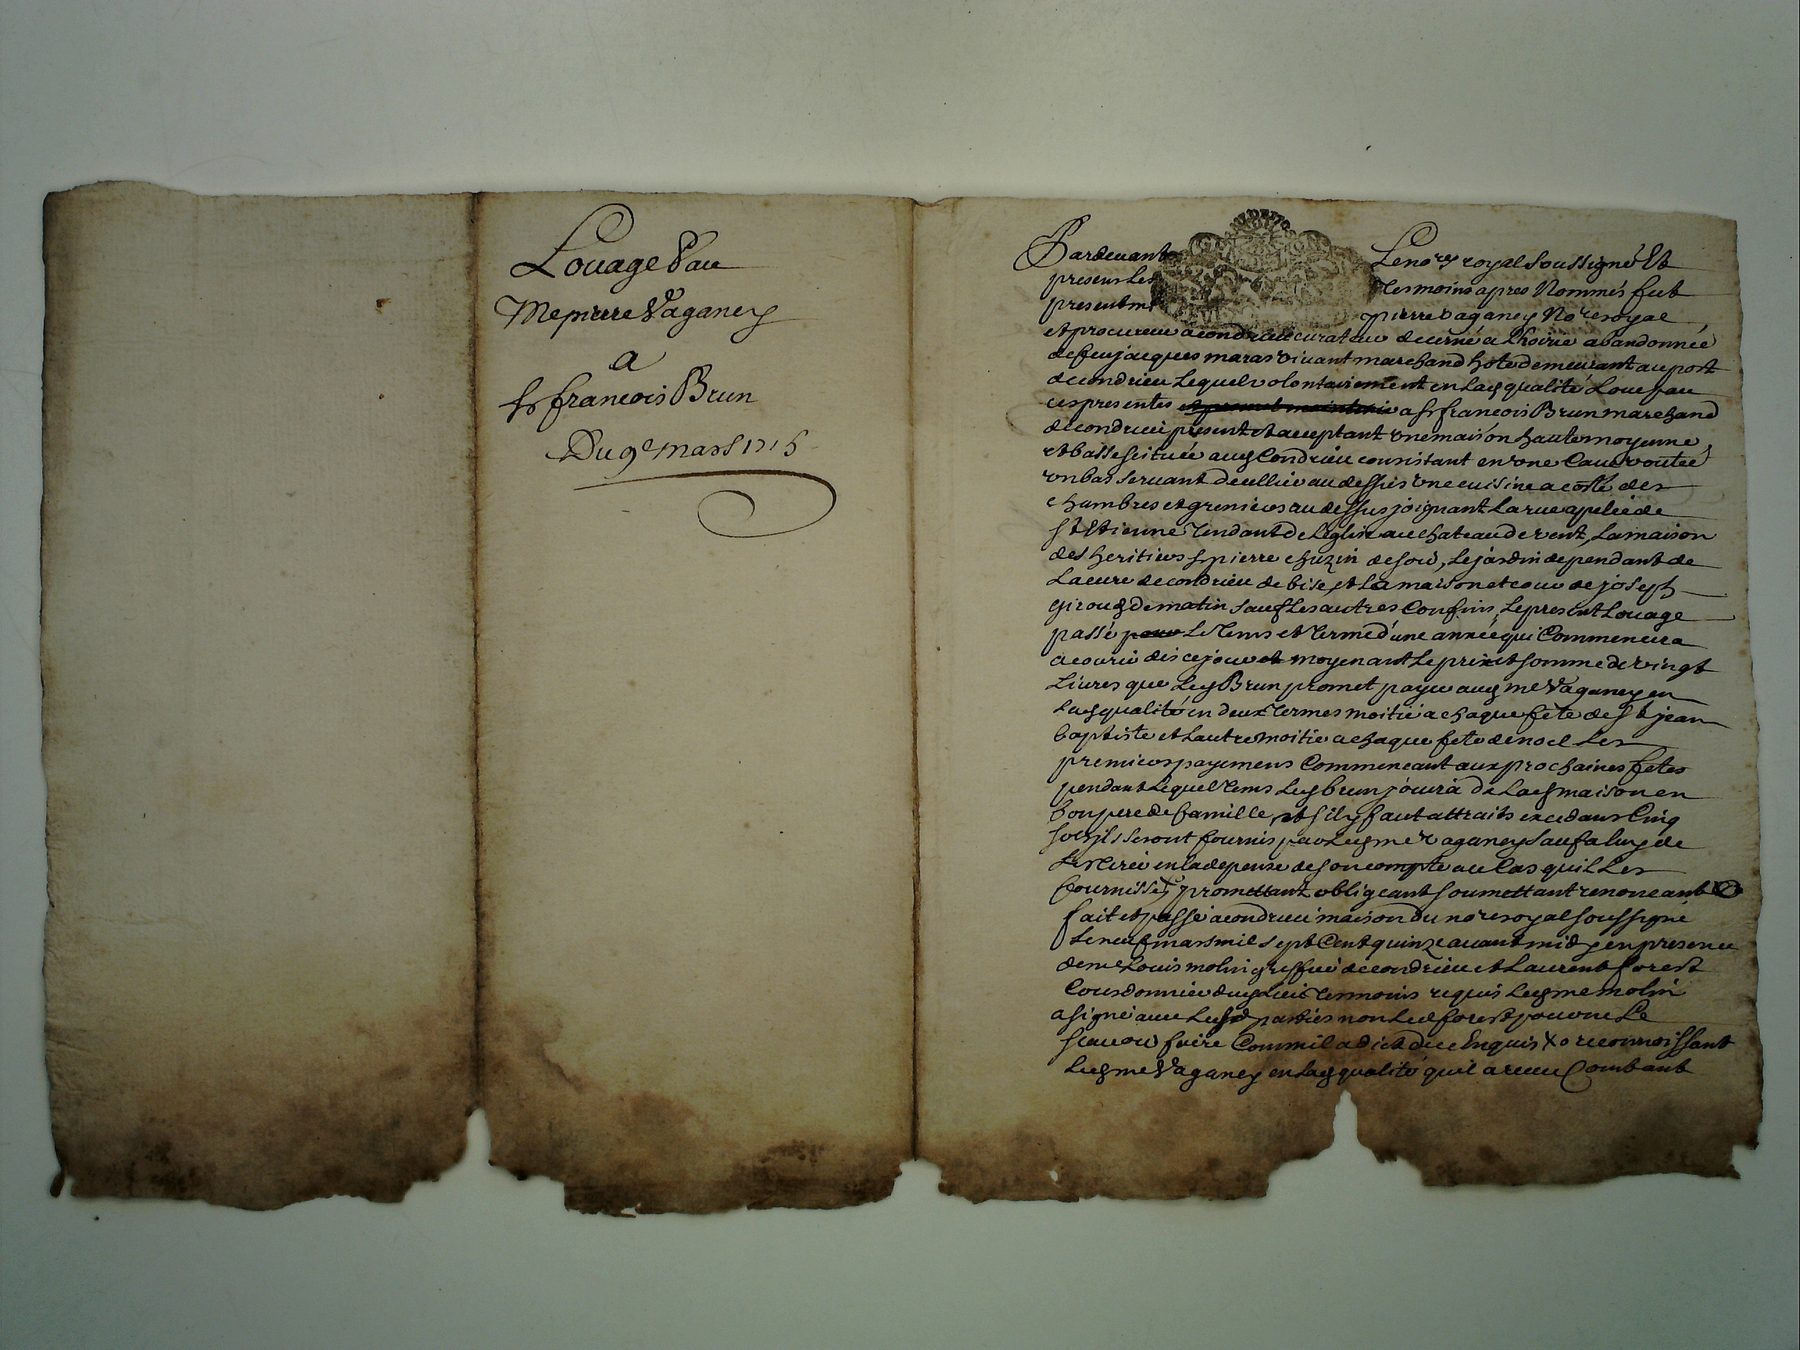 Louage Par
Me pierre Vaganey
a
Sr francois Brun
Du 9e mars 1715
Pardevant Le nore royal soussigné Et
presens Les Tesmoins apres Nommés fut
present me pierre vaganey Nore royal
et procureur a condrieu curateur decerné a Lhoirie abandonnée
de feu jacques maras vivant marchand hote demeurant au port
de condrieu Lequel volontairement en Lad qualité Loue par
ces presentes a Sr francois Brun marchand
de condrieu present et acceptant une maison haute moyenne
et basse scituée aud Condrieu consistant en une Cave voutée
un bas servant de cellier au dessus une cuisine a costé des
chambres et greniers au dessus joignant La rue apellée de
St Etienne Tendant de Leglise au chateau de vent, La maison
des heritiers Sr pierre chuzin de soir, Le jardin dependant de
La cure de condrieu de bise, et La maison et cour de joseph
giroud de matin sauf Les autres Confins, Le present Louage
passé pour Le Tems et Terme d'une année qui Commencera
a courir dès ce jour et moyenant Le prix et somme de vingt
Livres que Led Brun promet payer aud me Vaganey en
Lad qualité en deux Termes moitié a chaque fête de St jean
baptiste et Lautre moitié a chaque fete de noel Les
premiers payemens Commencant aux prochaines fetes
pendant Lequel Tems Led brun jouira de Lad maison en
bon pere de famille, et s'il y faut attraits excedans Cinq
sols ils seront fournis par Led me vaganey sauf a luy de
Les Tirer en la depense de son compte au Cas quil Les
fournisse, promettant obligeant soumettant renoncant
fait et passé a condrieu maison du nore royal soussigné
Le neuf mars mil sept Cent quinze avant midy en presence
de me Louis molin greffier de condrieu et Laurent forest
Cordonnier dud Lieu Tesmoins requis Led me molin
a signé avec Lesd parties non Led forest pour ne Le
scavoir faire Comme il a dit de ce Enquis reconnoissant
Led me Vaganey en Lad qualité quil a receu Comtant